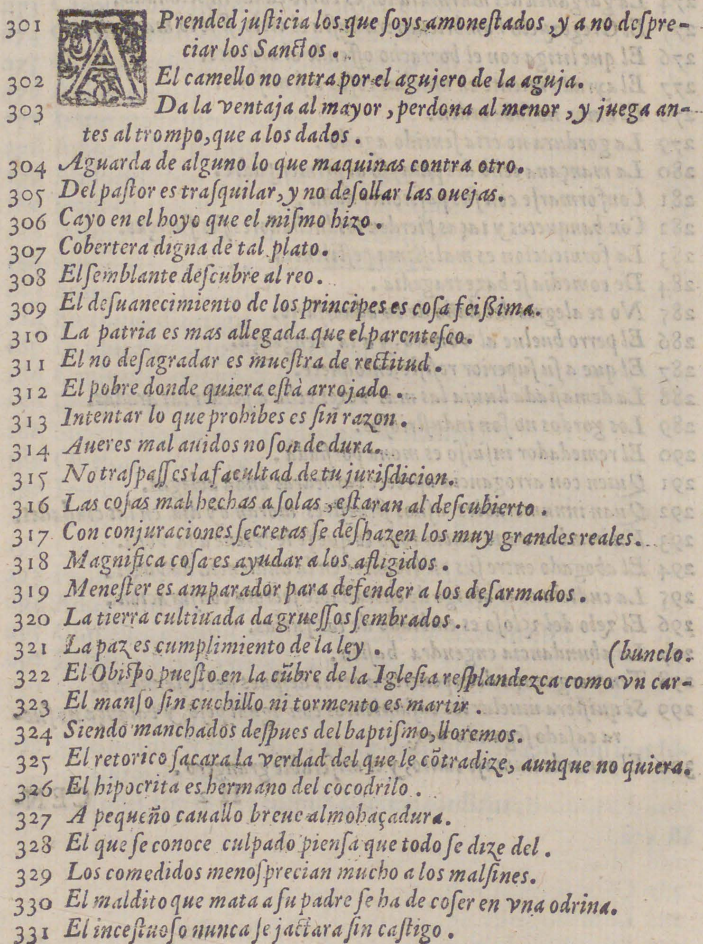 301 APrended justicia los que soys amonestados, y a no despre-
ciar los Sanctos.
302 El camello no entra por el agujero de la aguja.
303 Da la ventaja al mayor, perdona al menor, y juega an-
tes al trompo, que a los dados.
304 Aguarda de alguno lo que maquinas contra otro.
305 Del pastor es trasquilar, y no desollar las ouejas.
306 Cayo en el hoyo que el mismo hizo.
307 Cobertera digna de tal plato.
308 El semblante descubre al reo.
309 El desuanecimiento de los principes es cosa feissima.
310 La patria es mas allegada que el parentesco.
311 El no desagradar es muestra de rectitud.
312 El pobre donde quiera està arrojado.
313 Intentar lo que prohibes es sin razon.
314 Aueres mal auidos no son de dura.
315 No traspasses la facultad de tu jurisdicion.
316 Las cosas mal hechas a solas, estaran al descubierto.
317 Con conjuraciones secretas se deshazen los muy grandes reales.
318 Magnifica cosa es ayudar a los afligidos.
319 Menester es amparador para defender a los desarmados.
320 La tierra cultiuada da gruessos sembrados.
321 La paz es cumplimiento de la ley. (bunclo.
322 El Obispo puesto en la cũbre de la Iglesia resplandezca como vn car-
323 El manso sin cuchillo ni tormento es martir.
324 Siendo manchados despues del baptismo, lloremos.
325 El retorico sacara la verdad del que le cõtradize, aunque no quiera.
326 El hipocrita es hermano del cocodrilo.
327 A pequeño cauallo breue almohaçadura.
328 El que se conoce culpado piensa que todo se dize del.
329 Los comedidos menosprecian mucho a los malsines.
330 El maldito que mata a su padre se ha de coser en vna odrina.
331 El incestuoso nunca se jactara sin castigo.